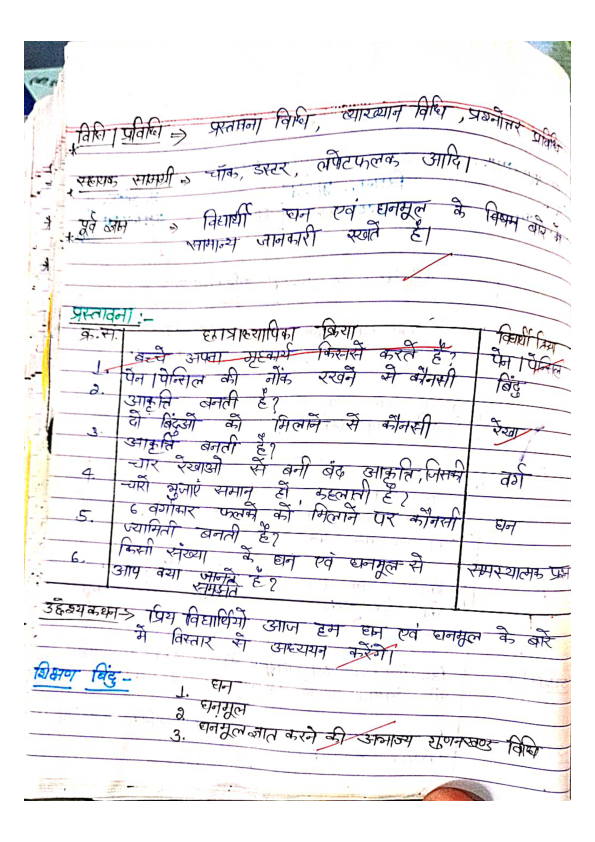 विधि / प्रविधि ⇒ प्रस्तावना विधि, व्याख्यान विधि, प्रश्नोत्तर प्रविधि
सहायक सामग्री ⇒ चॉक, डस्टर, लपेटफलक आदि।
पूर्व ज्ञान ⇒ विद्यार्थी घन एवं घनमूल के विषय बारे में
सामान्य जानकारी रखते हैं।
प्रस्तावना :-
क्र.स. छात्राध्यापिका क्रिया विद्यार्थी क्रिया
1. बच्चे अपना गृहकार्य किससे करते हैं? पेन / पेन्सिल
2. पेन / पेन्सिल की नोंक रखने से कौनसी बिंदु
आकृति बनती है?
3. दो बिंदुओं को मिलाने से कौनसी रेखा
आकृति बनती है?
4. चार रेखाओ से बनी बंद आकृति, जिसकी वर्ग
चारों भुजाएं समान हो, कहलाती है?
5. 6 वर्गाकार फलकों को मिलाने पर कौनसी घन
ज्यामिती बनती है?
6. किसी संख्या के घन एवं घनमूल से समस्यात्मक प्रश्न
आप क्या जानते है?
समझते
उद्देश्य कथन → प्रिय विद्यार्थियों आज हम घन एवं घनमूल के बारे
में विस्तार से अध्ययन करेंगे।
शिक्षण बिंदु -
1. घन
2. घनमूल
3. घनमूल ज्ञात करने की अभाज्य गुणनखण्ड विधि